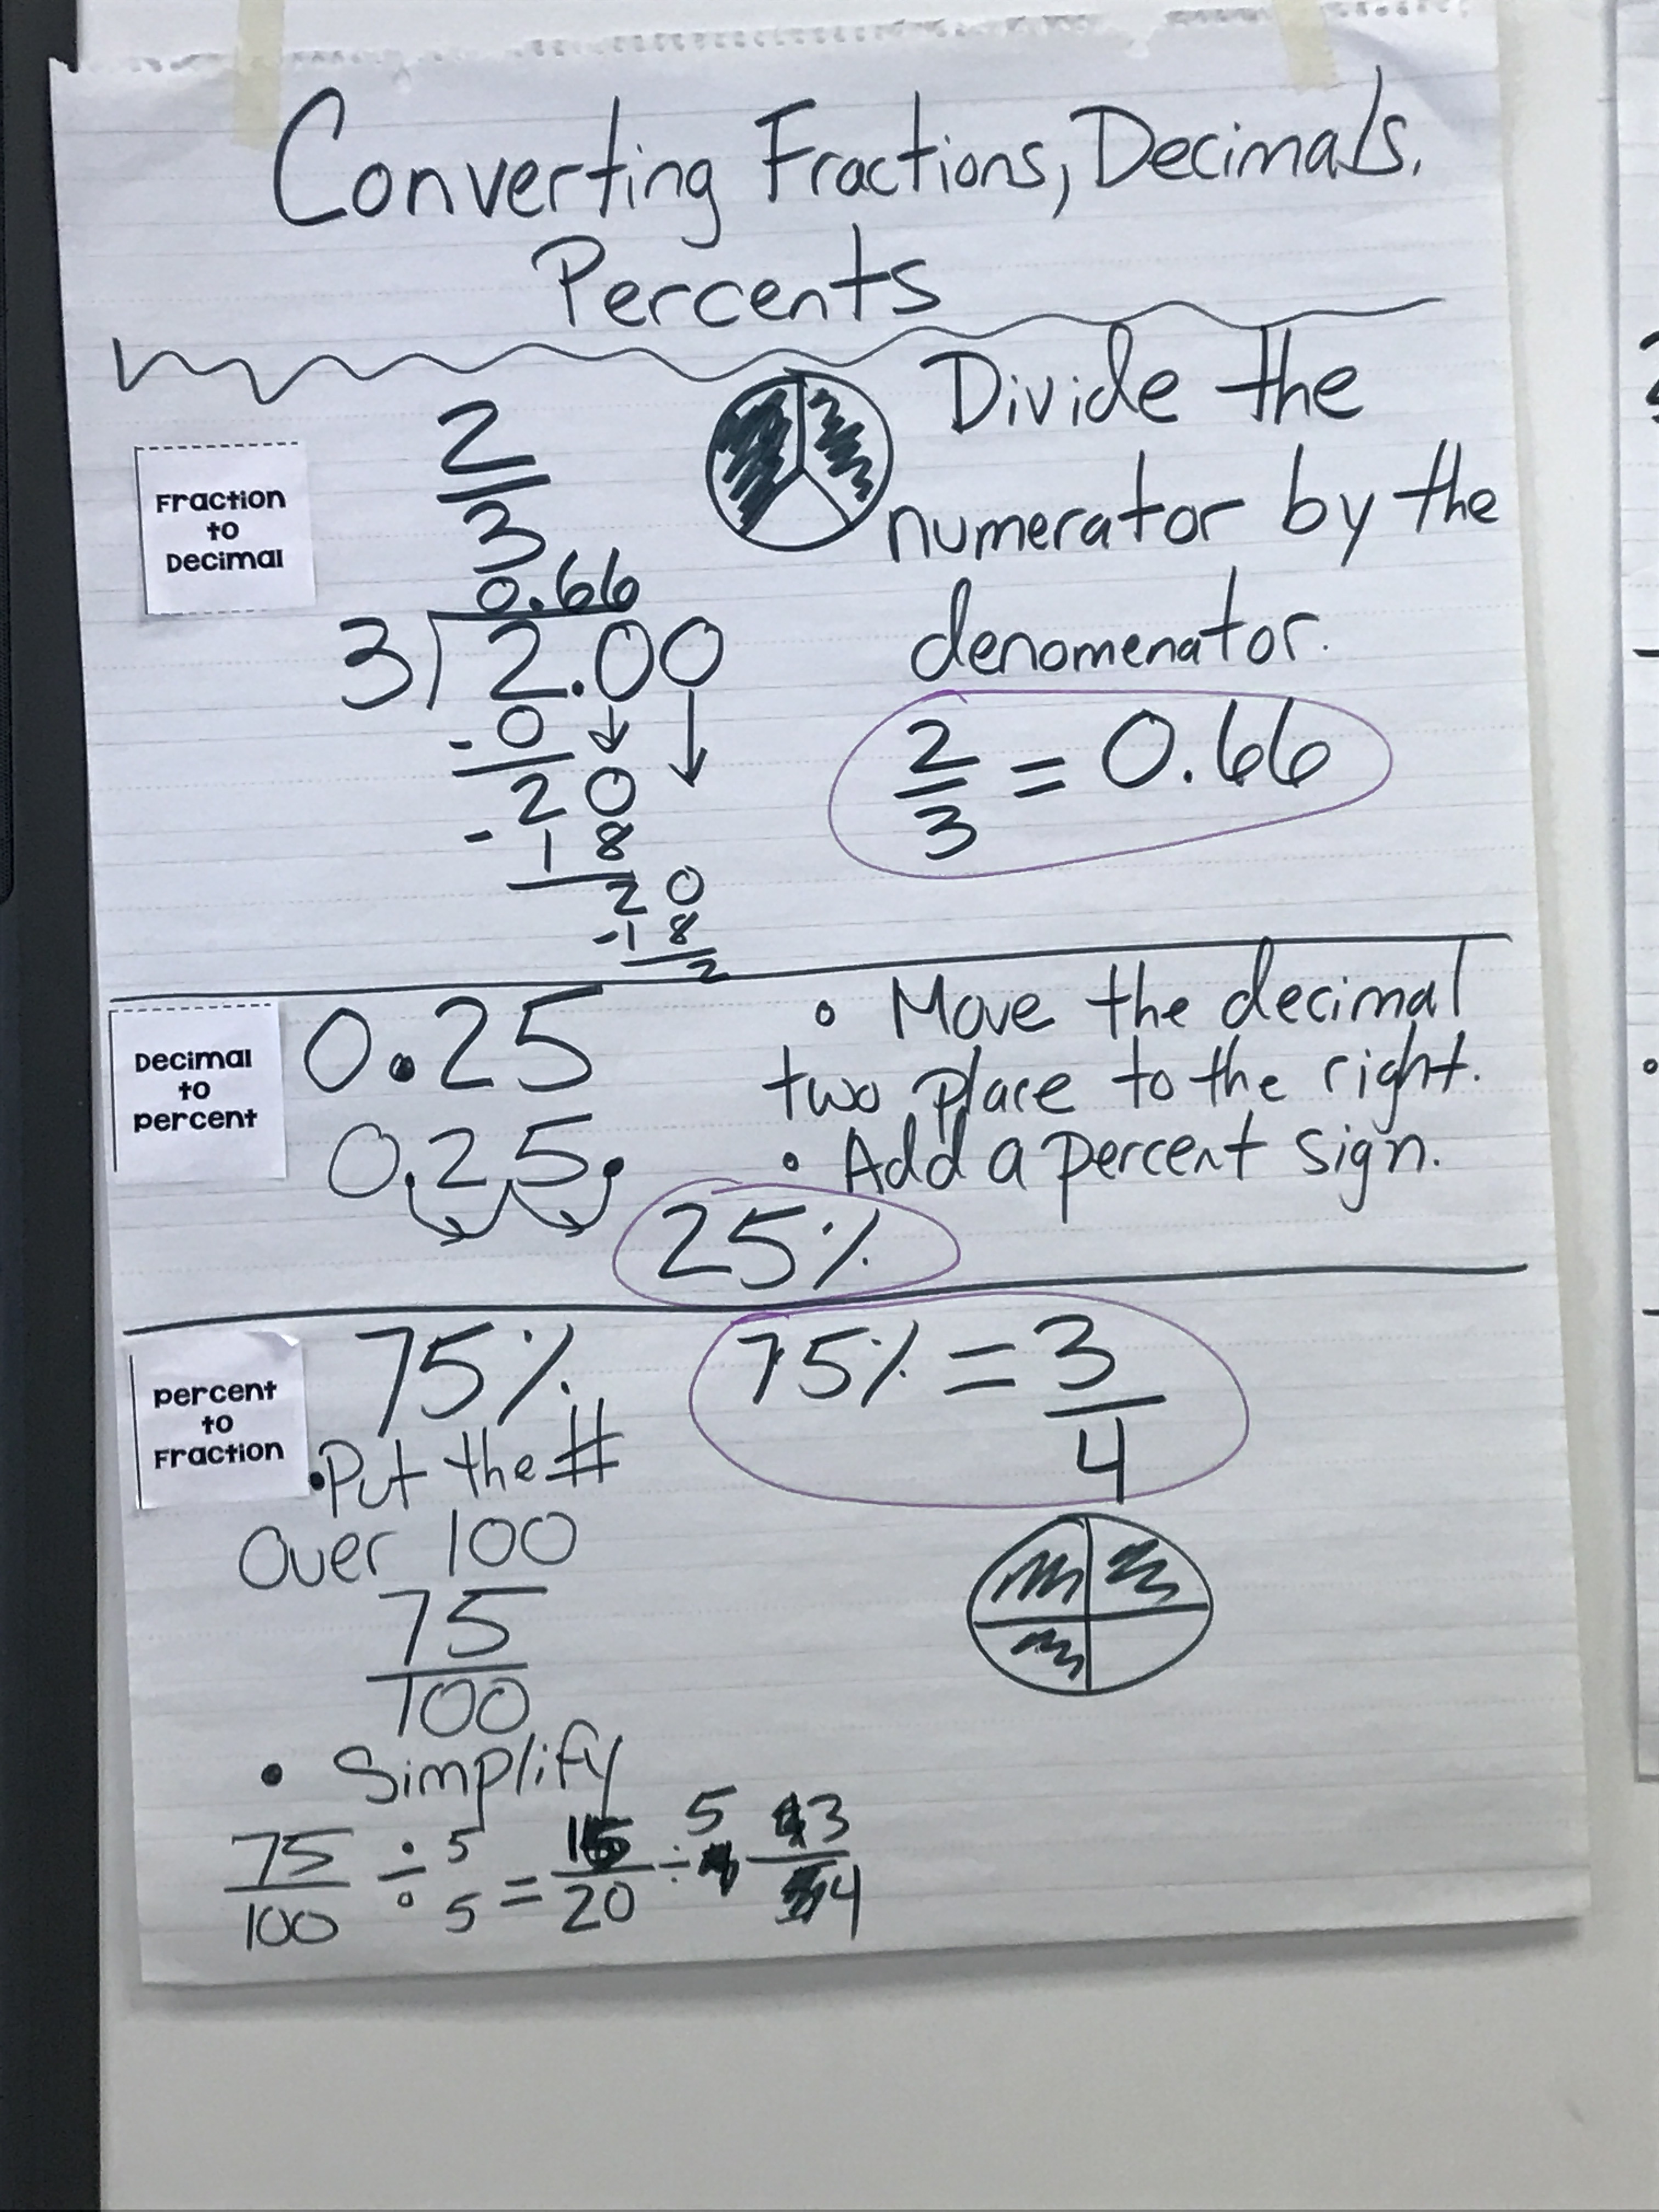 Converting Fractions, Decimals,
Percents
Fraction
to
Decimal
2
3
0.66
3 2.00
- 0
2 0
- 1 8
2 0
- 1 8
2
Divide the
numerator by the
denomenator.
2/3 = 0.66
Decimal
to
percent
0.25
0.25.
• Move the decimal
two place to the right.
• Add a percent sign.
25%
percent
to
Fraction
75%
• Put the #
Over 100
75
100
• Simplify
75/100 ÷ 5/5 = 15/20 ÷ 5 3/4
75% = 3/4